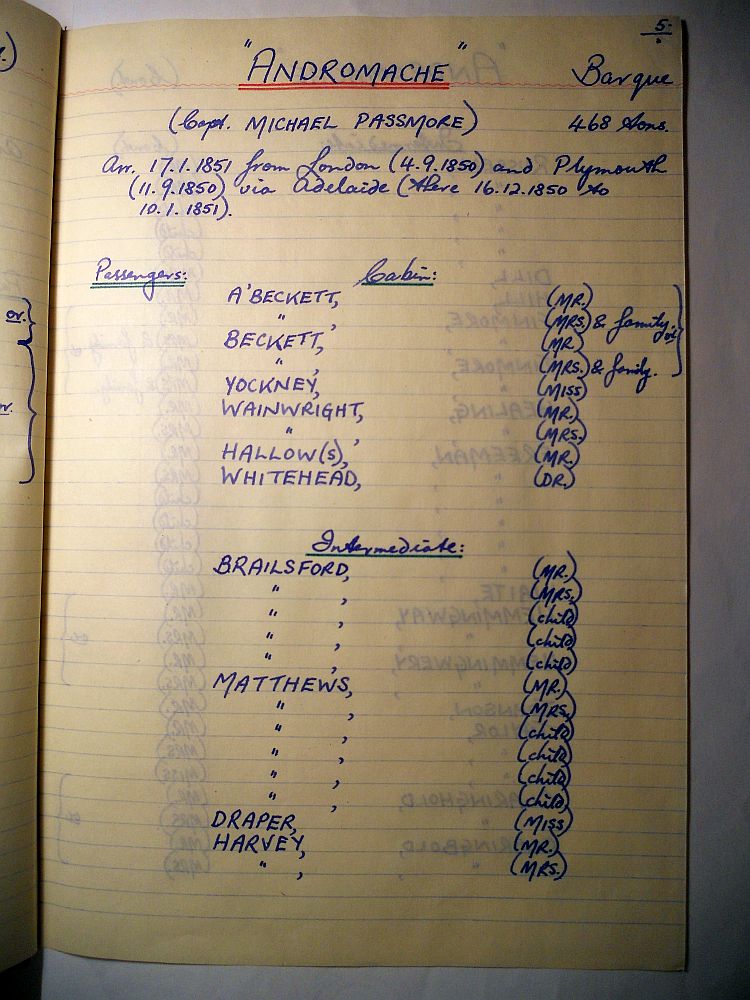 5.
"ANDROMACHE" Barque
(Capt. MICHAEL PASSMORE) 468 tons.
Arr. 17.1.1851 from London (4.9.1850) and Plymouth
(11.9.1850) via Adelaide (there 16.12.1850 to
10.1.1851).
Passengers: Cabin:
A'BECKETT, (MR.)
" , (MRS.) & family. or
BECKETT, (MR.)
" , (MRS.) & family.
YOCKNEY, (MISS)
WAINWRIGHT, (MR.)
" , (MRS.)
HALLOW(S), (MR.)
WHITEHEAD, (DR.)
Intermediate:
BRAILSFORD, (MR.)
" , (MRS.)
" , (child)
" , (child)
" , (child)
MATTHEWS, (MR.)
" , (MRS.)
" , (child)
" , (child)
" , (child)
" , (child)
DRAPER, (MISS)
HARVEY, (MR.)
" , (MRS.)
or.